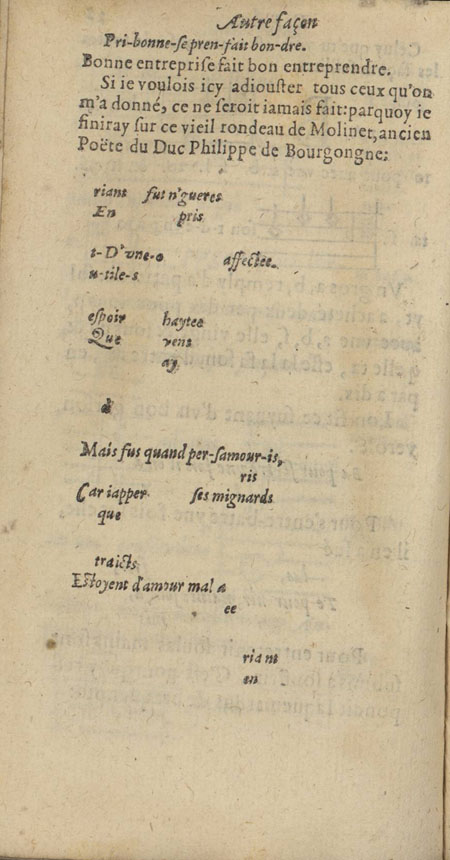 Autre façon
Pri-bonne-se pren-fait bon-dre.
Bonne entreprise fait bon entreprendre.
Si ie voulois icy adiouster tous ceux qu'on
m'a donné, ce ne seroit iamais fait: parquoy ie
finiray sur ce vieil rondeau de Molinet, ancien
Poëte du Duc Philippe de Bourgongne:
riant fut n'gueres
En pris
t-D'vne-o affectee.
u-tile-s
espoir haytee
Que vent
ay
d
Mais fus quand per-samour-is,
ris
Car iapper ses mignards
que
traicts
Estoyent d'amour mal a
ee
riant
en